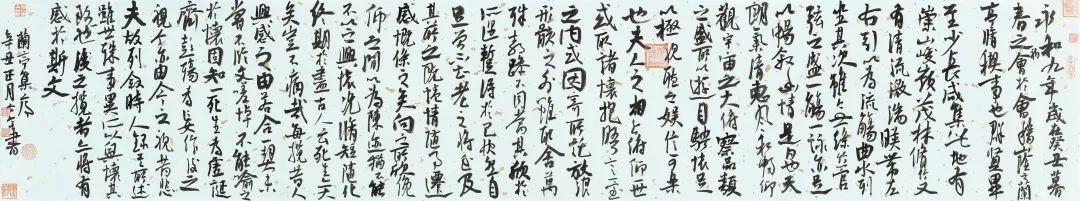 永和九年歲在癸丑暮
春之初會於會稽山陰之蘭
亭脩禊事也群賢畢
至少長咸集此地有
崇山峻領茂林脩竹又
有清流激湍暎帶左
右引以為流觴曲水列
坐其次雖無絲竹管
弦之盛一觴一詠亦足
以暢敘幽情是日也天
朗氣清惠風和暢仰
觀宇宙之大俯察品類
之盛所以遊目騁懷足
以極視聽之娛信可樂
也夫人之相與俯仰一世
或取諸懷抱悟言一室
之內或因寄所託放浪
形骸之外雖趣舍萬
殊靜躁不同當其欣於
所遇暫得於己快然自
足曾不知老之將至及
其所之既惓情隨事遷
感慨係之矣向之所欣俛
仰之間以為陳跡猶不能
不以之興懷況脩短隨化
終期於盡古人云死生亦大
矣豈不痛哉每攬昔人
興感之由若合一契未
嘗不臨文嗟悼不能喻之
於懷固知一死生為虛誕
齊彭殤為妄作後之
視今亦由今之視昔悲
夫故列敘時人錄其所述
雖世殊事異所以興懷其
致一也後之攬者亦將有
感於斯文
蘭亭集序
辛丑正月書